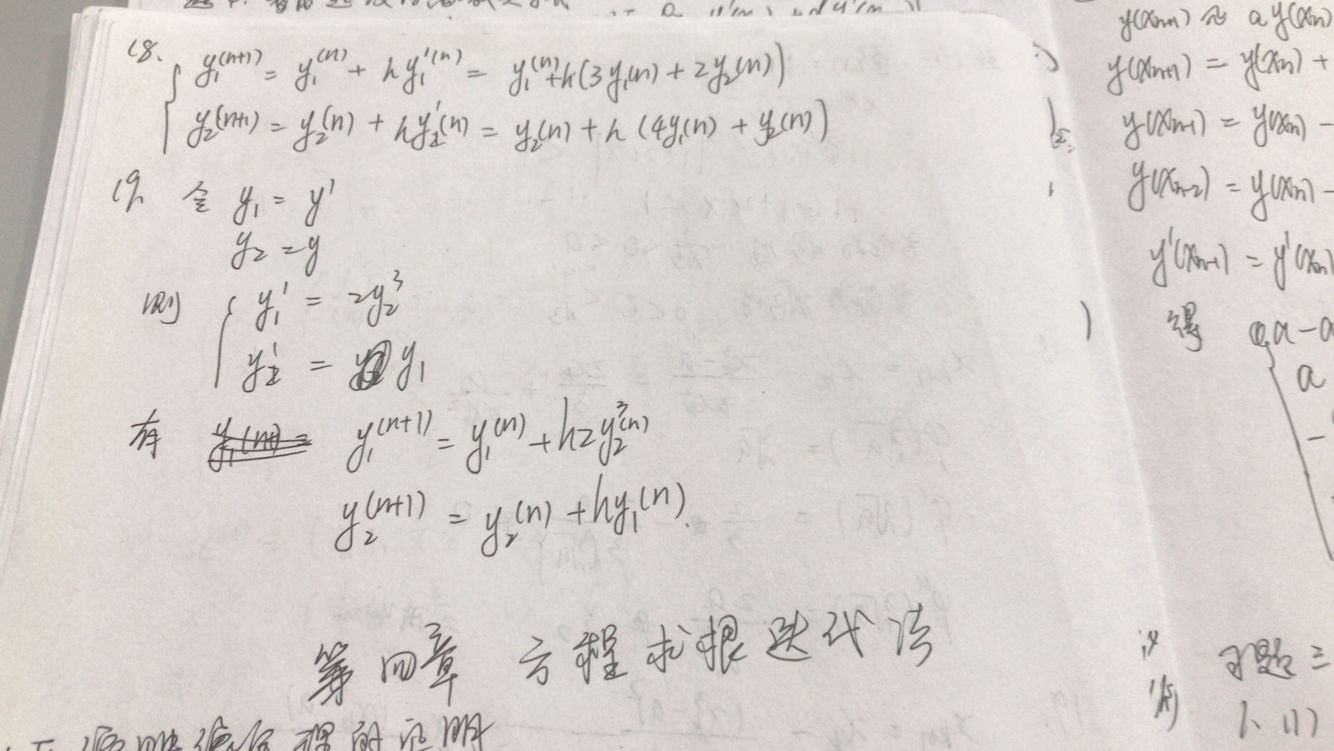 18. { y₁⁽ⁿ⁺¹⁾ = y₁⁽ⁿ⁾ + hy₁'⁽ⁿ⁾ = y₁⁽ⁿ⁾ + h(3y₁(n) + 2y₂(n))
y₂(n+1) = y₂(n) + hy₂'(n) = y₂(n) + h (4y₁(n) + y₂(n))
19. 令 y₁ = y'
y₂ = y
则 { y₁' = 2y₂³
y₂' = y₁
有 y₁⁽ⁿ⁺¹⁾ = y₁⁽ⁿ⁾ + h2y₂³⁽ⁿ⁾
y₂⁽ⁿ⁺¹⁾ = y₂⁽ⁿ⁾ + hy₁⁽ⁿ⁾.
第四章 方程求根迭代法
y(xₙ₊₁) ≈ ay(xₙ)
y(xₙ₊₁) = y(xₙ) +
y(xₙ₋₁) = y(xₙ) -
y(xₙ₋₂) = y(xₙ) -
y'(xₙ₋₁) = y'(xₙ)
得
a
习题三
1. (1)